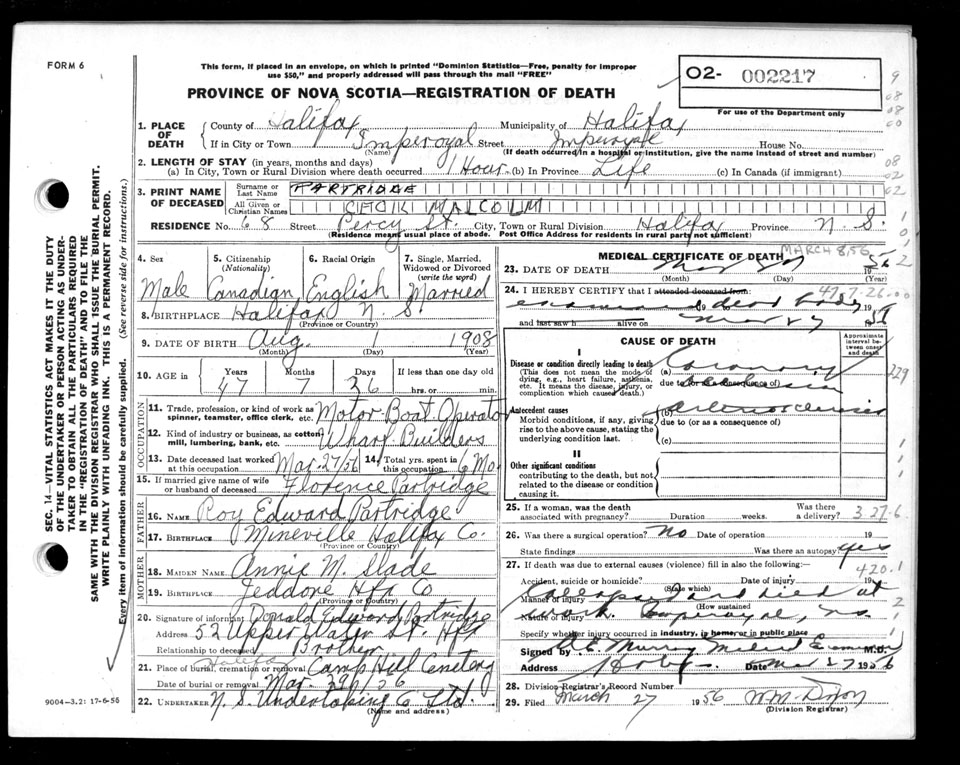 FORM 6
This form, if placed in an envelope, on which is printed "Dominion Statistics—Free, penalty for improper
use $50," and properly addressed will pass through the mail "FREE"
PROVINCE OF NOVA SCOTIA—REGISTRATION OF DEATH
02- 002217
For use of the Department only
1. PLACE OF DEATH { County of Halifax Municipality of Halifax
If in City or Town Imperoyal Street Imperoyal House No.
(Name) (If death occurred in a hospital or institution, give the name instead of street and number)
2. LENGTH OF STAY (in years, months and days)
(a) In City, Town or Rural Division where death occurred 1 Hour (b) In Province Life (c) In Canada (if immigrant)
3. PRINT NAME OF DECEASED { Surname or Last Name PARTRIDGE
All Given or Christian Names MALCOLM
RESIDENCE No. 68 Street Percy St. City, Town or Rural Division Halifax Province N. S.
(Residence means usual place of abode. Post Office Address for residents in rural parts not sufficient)
4. Sex Male
5. Citizenship (Nationality) Canadian
6. Racial Origin English
7. Single, Married, Widowed or Divorced (write the word) Married
8. BIRTHPLACE Halifax N. S.
(Province or Country)
9. DATE OF BIRTH Aug. 1 1908
(Month) (Day) (Year)
10. AGE in Years 47 Months 7 Days 26 If less than one day old
hrs. or min.
OCCUPATION
11. Trade, profession, or kind of work as spinner, teamster, office clerk, etc. Motor Boat Operator
12. Kind of industry or business, as cotton mill, lumbering, bank, etc. Wharf Builders
13. Date deceased last worked at this occupation Mar. 27/56 14. Total yrs. spent in this occupation 6 Mo.
15. If married give name of wife or husband of deceased Florence Partridge
FATHER
16. NAME Roy Edward Partridge
17. BIRTHPLACE Mineville Halifax Co.
(Province or Country)
MOTHER
18. MAIDEN NAME Annie M. Slade
19. BIRTHPLACE Jeddore Hfx Co
(Province or Country)
20. Signature of informant Donald Edward Partridge
Address 52 Upper Water St. Hfx
Relationship to deceased Brother
21. Place of burial, cremation or removal Halifax Camp Hill Cemetery
Date of burial or removal Mar. 29/56
22. UNDERTAKER N. S. Undertaking Co Ltd.
(Name and address)
9004—3.2: 17-6-55
SEC. 14—VITAL STATISTICS ACT MAKES IT THE DUTY
OF THE UNDERTAKER OR PERSON ACTING AS UNDER-
TAKER TO OBTAIN ALL THE PARTICULARS REQUIRED
IN THE "REGISTRATION OF DEATH" AND TO FILE THE
SAME WITH THE DIVISION REGISTRAR WHO SHALL ISSUE THE BURIAL PERMIT.
WRITE PLAINLY WITH UNFADING INK. THIS IS A PERMANENT RECORD.
Every item of information should be carefully supplied. (See reverse side for instructions.)
MEDICAL CERTIFICATE OF DEATH
MARCH
23. DATE OF DEATH 1956
(Month) (Day) (Year)
24. I HEREBY CERTIFY that I attended deceased from:
examined dead body 19
and last saw h alive on
CAUSE OF DEATH
Approximate interval between onset and death
I
Disease or condition directly leading to death (a) Coronary
(This does not mean the mode of dying, e.g., heart failure, asthenia, etc. It means the disease, injury, or complication which caused death.)
due to (or as a consequence of)
Antecedent causes (b) Arteriosclerosis
Morbid conditions, if any, giving rise to the above cause, stating the underlying condition last.
due to (or as a consequence of)
(c)
II
Other significant conditions
contributing to the death, but not related to the disease or condition causing it.
25. If a woman, was the death associated with pregnancy? Duration weeks. Was there a delivery?
26. Was there a surgical operation? No Date of operation 19
State findings Was there an autopsy? Yes
27. If death was due to external causes (violence) fill in also the following:-
420.1
Accident, suicide or homicide? Date of injury 19
(State which)
Manner of injury Collapsed and died at
(How sustained)
Nature of injury work Imperoyal, N.S.
Specify whether injury occurred in industry, in home, or in public place
Signed by Murray Medical Examiner M.D.
Address Date Mar 27 1956
28. Division Registrar's Record Number
29. Filed March 27 1956
(Division Registrar)